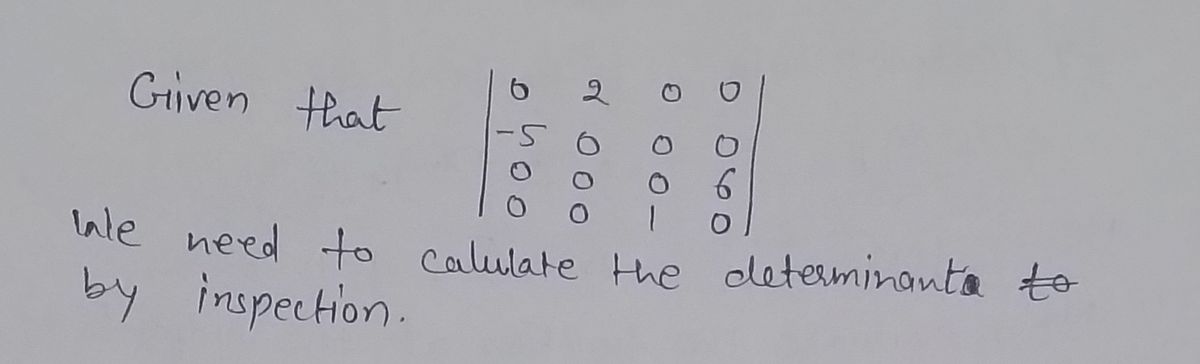 Given that | 0 2 0 0 |
| -5 0 0 0 |
| 0 0 0 6 |
| 0 0 1 0 |
We need to calulate the determinant to
by inspection.